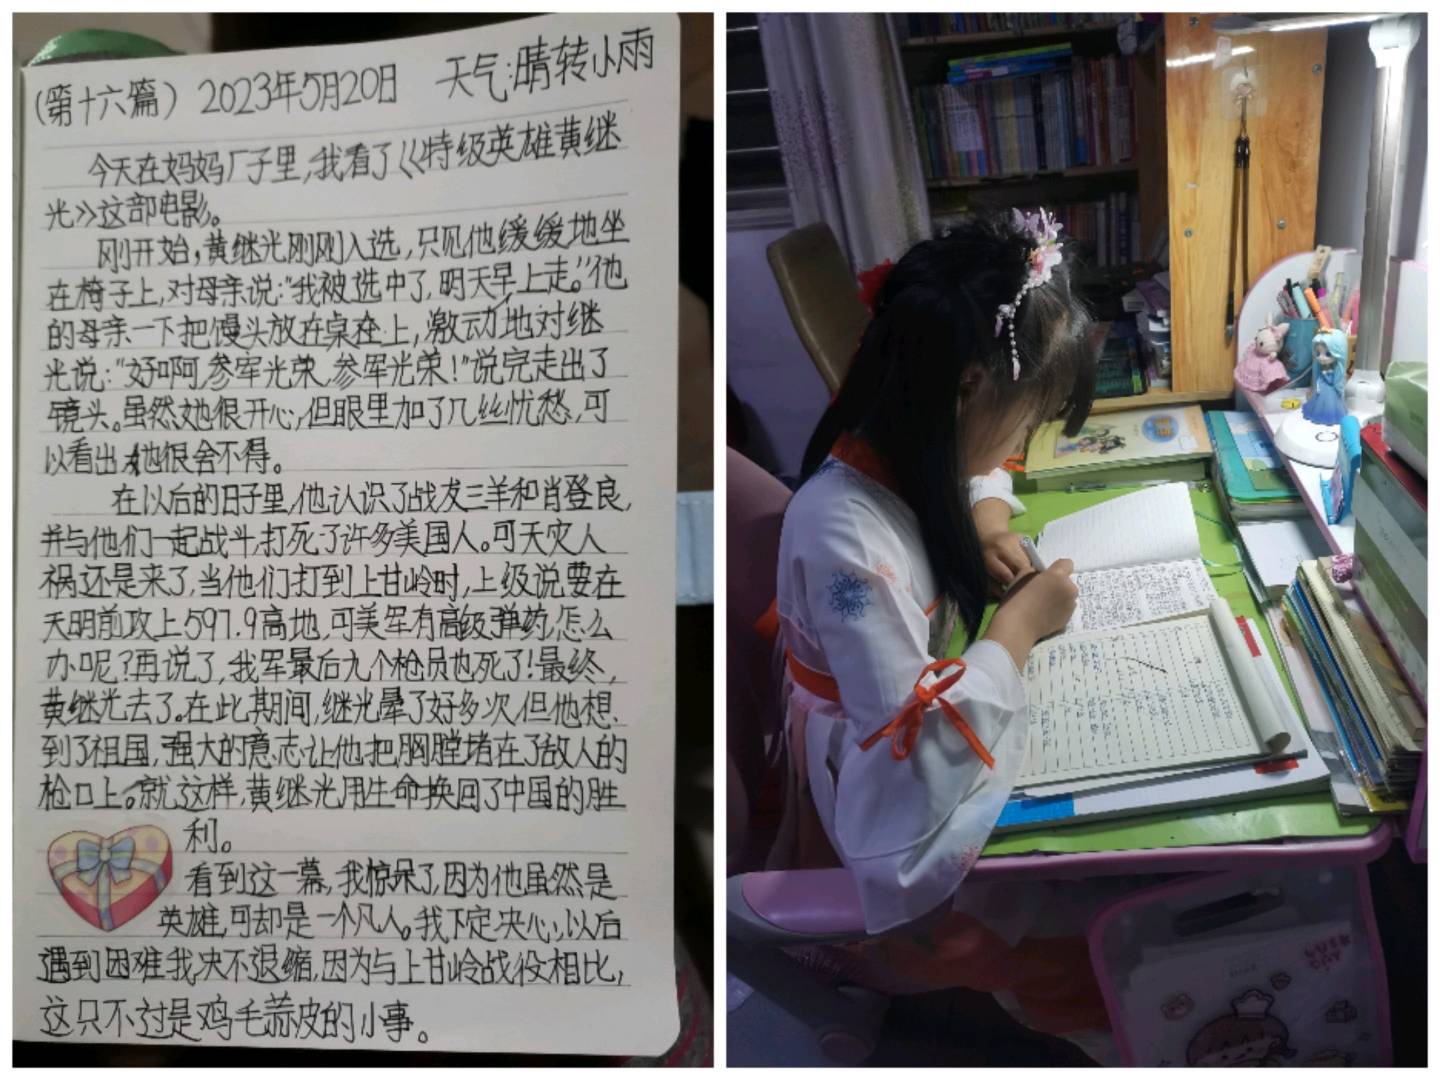 （第十六篇） 2023年5月20日 天气：晴转小雨
今天在妈妈厂子里，我看了《特级英雄黄继
光》这部电影。
刚开始，黄继光刚刚入选，只见他缓缓地坐
在椅子上，对母亲说：“我被选中了，明天早上走。”他
的母亲一下把馒头放在桌 上，激动地对继
光说：“好啊，参军光荣，参军光荣！”说完走出了
镜头。虽然她很开心，但眼里加了几丝忧愁，可
以看出她很舍不得。
在以后的日子里，他认识了战友三羊和肖登良，
并与他们一起战斗，打死了许多美国人。可天灾人
祸还是来了，当他们打到上甘岭时，上级说要在
天明前攻上597.9高地，可美军有高级弹药，怎么
办呢？再说了，我军最后九个枪员也死了！最终，
黄继光去了。在此期间，继光晕了好多次，但他想
到了祖国，强大的意志让他把胸膛堵在了敌人的
枪口上。就这样，黄继光用生命换回了中国的胜
利。
看到这一幕，我惊呆了，因为他虽然是
英雄，可却是一个凡人。我下定决心，以后
遇到困难我决不退缩，因为与上甘岭战役相比，
这只不过是鸡毛蒜皮的小事。